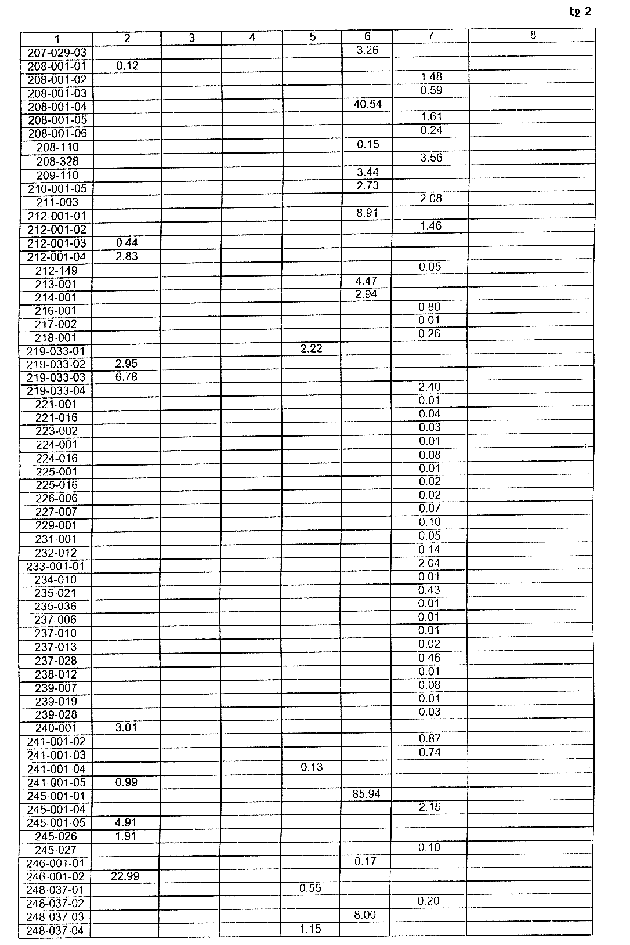 tg 2
1 2 3 4 5 6 7 8
207-029-03 3.26
208-001-01 0.12
208-001-02 1.48
208-001-03 0.59
208-001-04 40.54
208-001-05 1.61
208-001-06 0.24
208-110 0.15
208-328 3.56
209-110 3.44
210-001-05 2.73
211-003 2.08
212-001-01 8.91
212-001-02 1.46
212-001-03 0.44
212-001-04 2.83
212-149 0.05
213-001 4.47
214-001 2.94
216-001 0.80
217-002 0.01
218-001 0.26
219-033-01 2.22
219-033-02 2.95
219-033-03 6.78
219-033-04 2.40
221-001 0.01
221-016 0.04
223-002 0.03
224-001 0.01
224-016 0.08
225-001 0.01
225-016 0.02
226-006 0.02
227-007 0.07
229-001 0.10
231-001 0.05
232-012 0.14
233-001-01 2.04
234-010 0.01
235-021 0.43
236-036 0.01
237-006 0.01
237-010 0.01
237-013 0.02
237-028 0.46
238-012 0.01
239-007 0.08
239-019 0.01
239-028 0.03
240-001 3.01
241-001-02 0.87
241-001-03 0.74
241-001-04 0.13
241-001-05 0.99
245-001-01 85.94
245-001-04 2.18
245-001-05 4.91
245-026 1.91
245-027 0.10
246-001-01 0.17
246-001-02 22.99
248-037-01 0.55
248-037-02 0.20
248-037-03 8.00
248-037-04 1.15